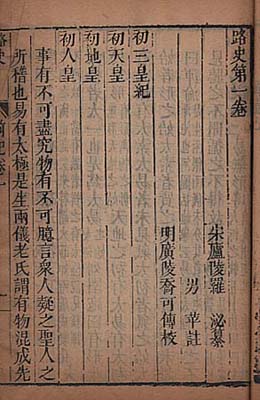 路史第一卷
宋廬陵羅　泌纂
男　苹註
明廣陵喬可傳校
初三皇紀
初天皇
初地皇
初人皇
事有不可盡究物有不可臆言衆人疑之聖人之
所稽也易有太極是生兩儀老氏謂有物混成先
路史
前紀卷一